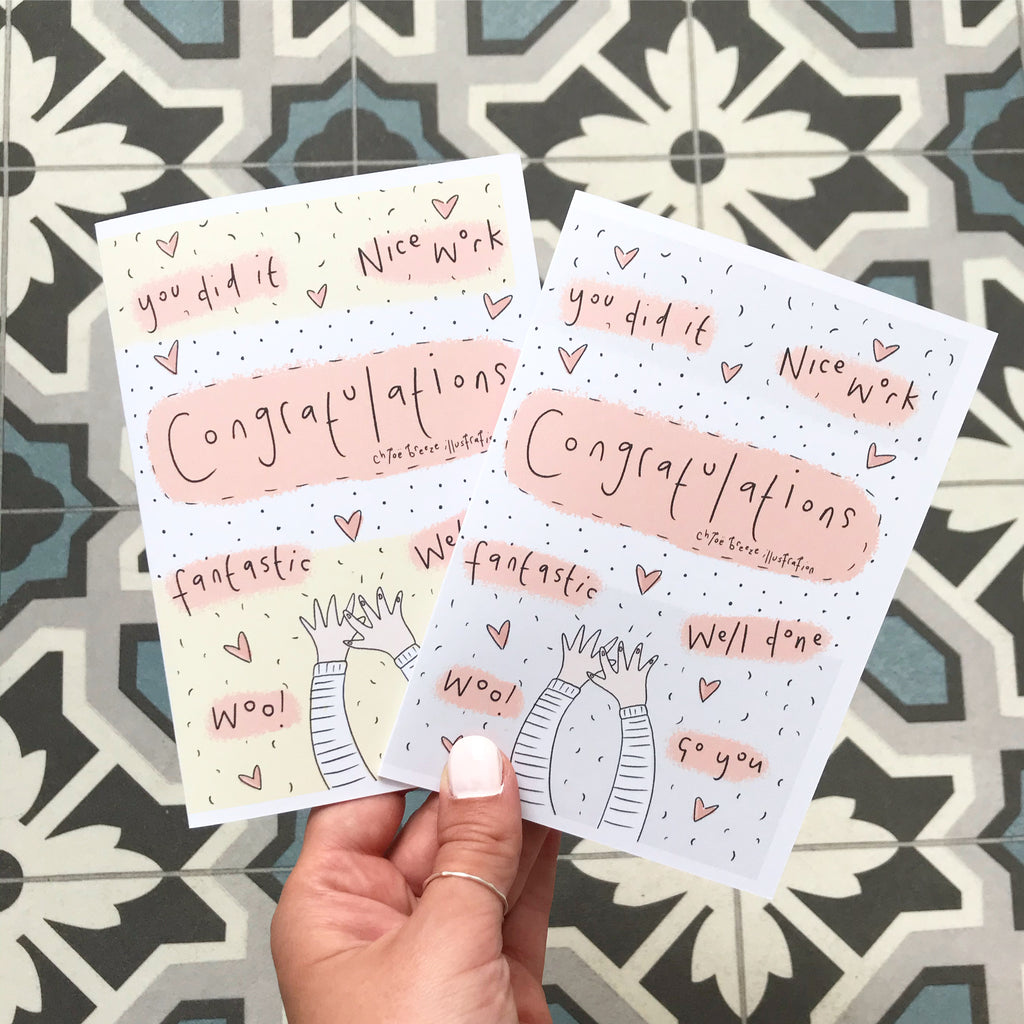 you did it
Nice work
Congratulations
chloe breeze illustration
fantastic
We
Woo!
you did it
Nice work
Congratulations
chloe breeze illustration
fantastic
Well done
Woo!
Go you